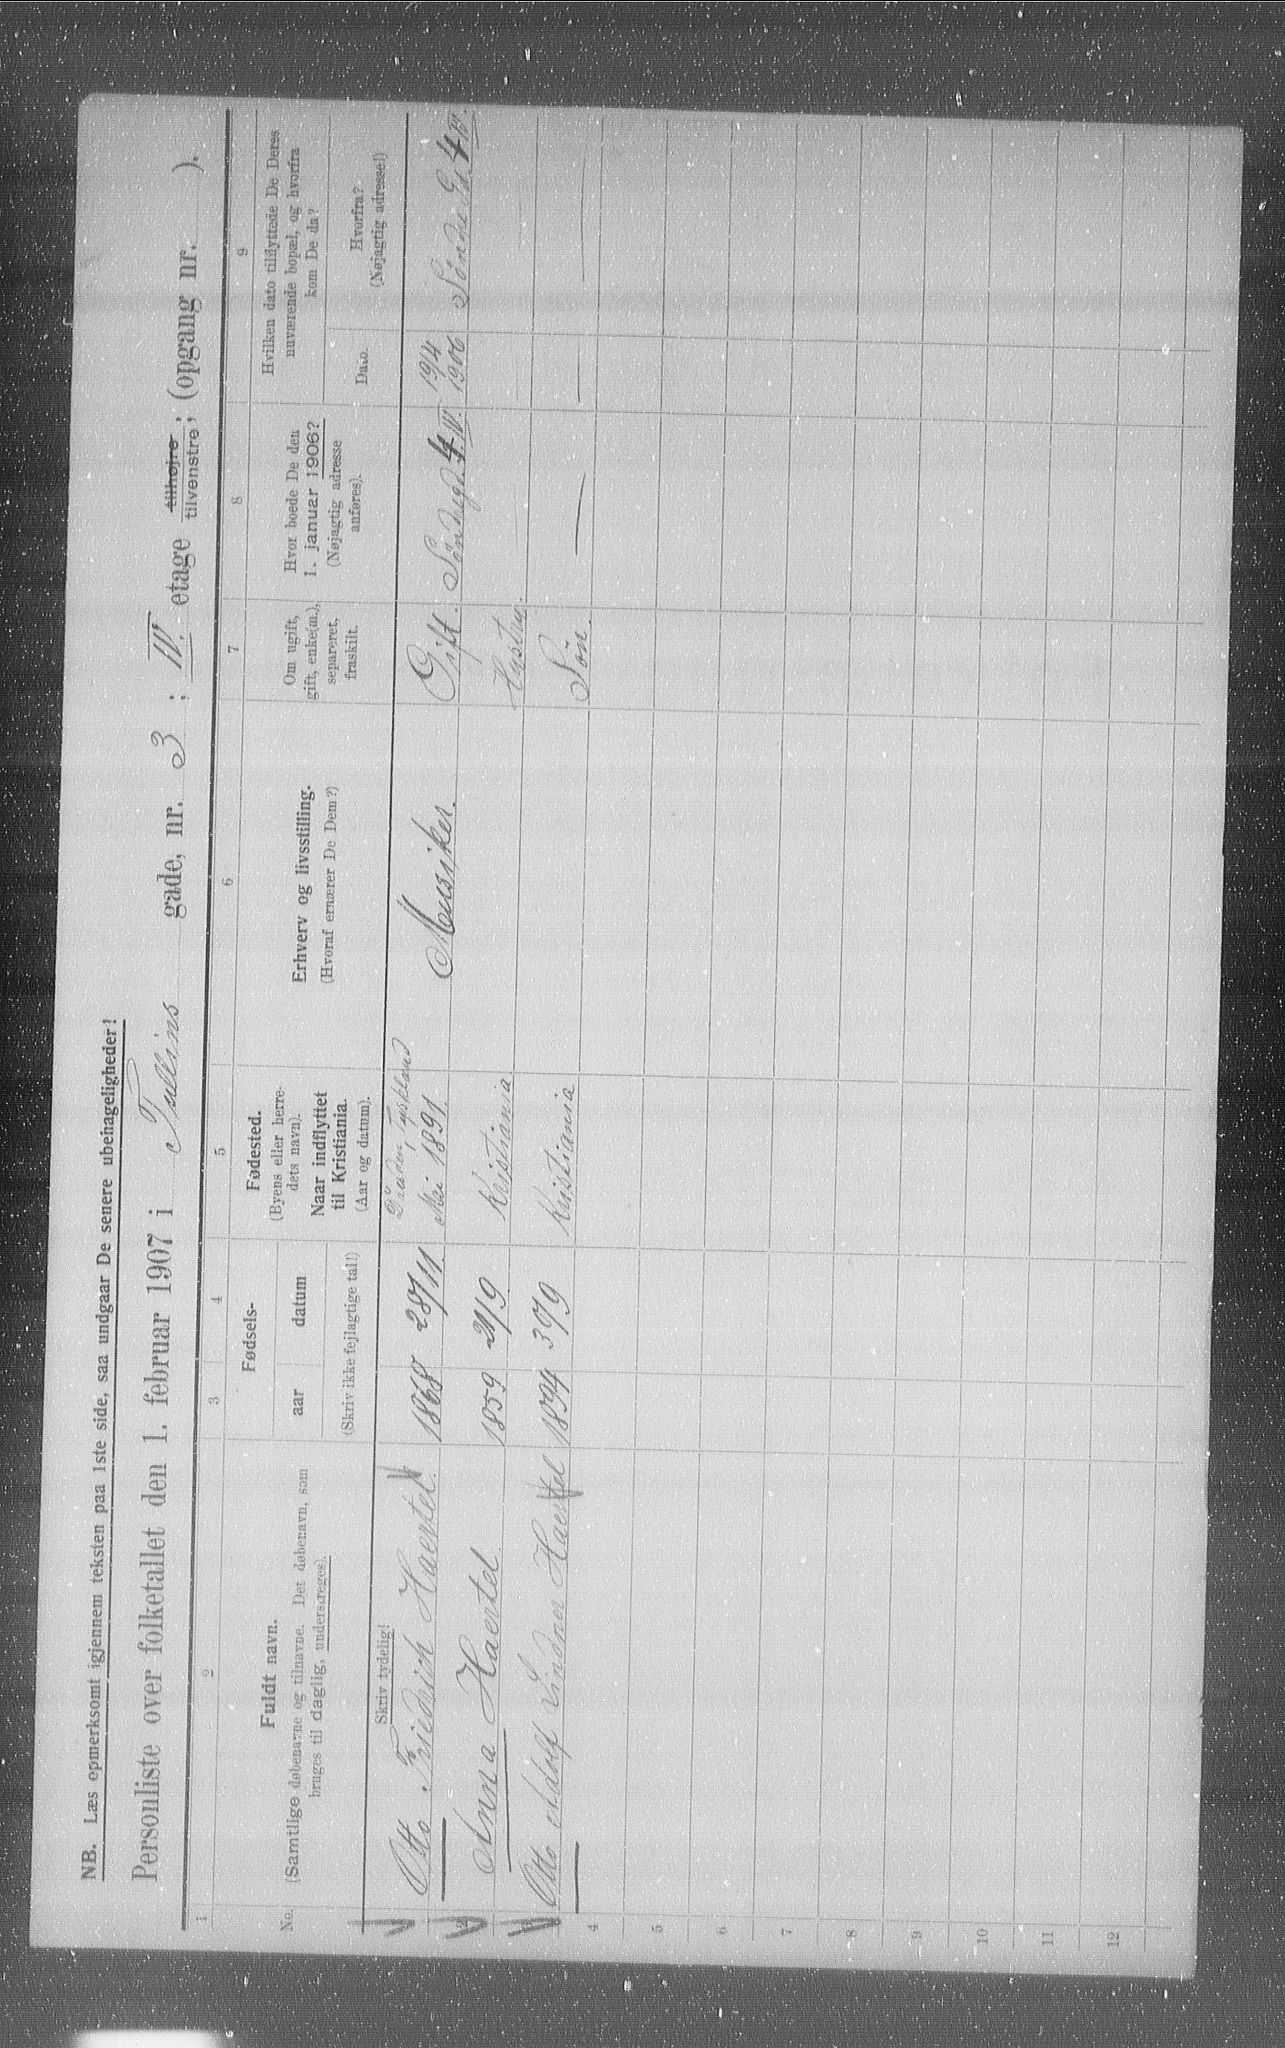 NB. Læs opmerksomt igjennem teksten paa 1ste side, saa undgaar De senere ubehageligheder!
Personliste over folketallet den 1. februar 1907 i Tullins gade, nr. 3 ; IV. etage tilhøjre tilvenstre ; (opgang nr. ).
1 2 3 4 5 6 7 8 9
No.
Fuldt navn.
(Samtlige døbenavne og tilnavne. Det døbenavn, som
bruges til daglig, understreges).
Fødsels-
aar datum
(Skriv ikke fejlagtige tal!)
Fødested.
(Byens eller herre-
dets navn).
Naar indflyttet
til Kristiania.
(Aar og datum).
Erhverv og livsstilling.
(Hvoraf ernærer De Dem?)
Om ugift,
gift, enke(m.),
separeret,
fraskilt.
Hvor boede De den
1. januar 1906?
(Nøjagtig adresse
anføres).
Hvilken dato tilflyttede De Deres
nuværende bopæl, og hvorfra
kom De da?
Dato.
Hvorfra?
(Nøjagtig adresse!)
Skriv tydelig!
Otto Friedrich Haertel 1868 28/11 Dresden, Tyskland
Mai 1891. Musiker. Gift. Søndregd. 4 IV. 19/4
1906 Søndre Gd. 4 IV.
Anna Haertel 1859 21/9 Kristiania Hustru.
Otto Adolf Lindner Haertel 1894 30/9 Kristiania Søn.
4
5
6
7
8
9
10
11
12